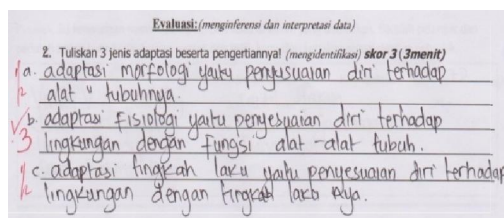 Evaluasi: (menginferensi dan interpretasi data)
2. Tuliskan 3 jenis adaptasi beserta pengertiannya! (mengidentifikasi) skor 3 (3menit)
a. adaptasi morfologi yaitu penyusuaian diri terhadap
alat " tubuhnya.
b. adaptasi Fisiologi yaitu penyesuaian diri terhadap
lingkungan dengan fungsi alat-alat tubuh.
c. adaptasi tingkah laku yaitu penyesuaian diri terhadap
lingkungan dengan tingkah laku nya.